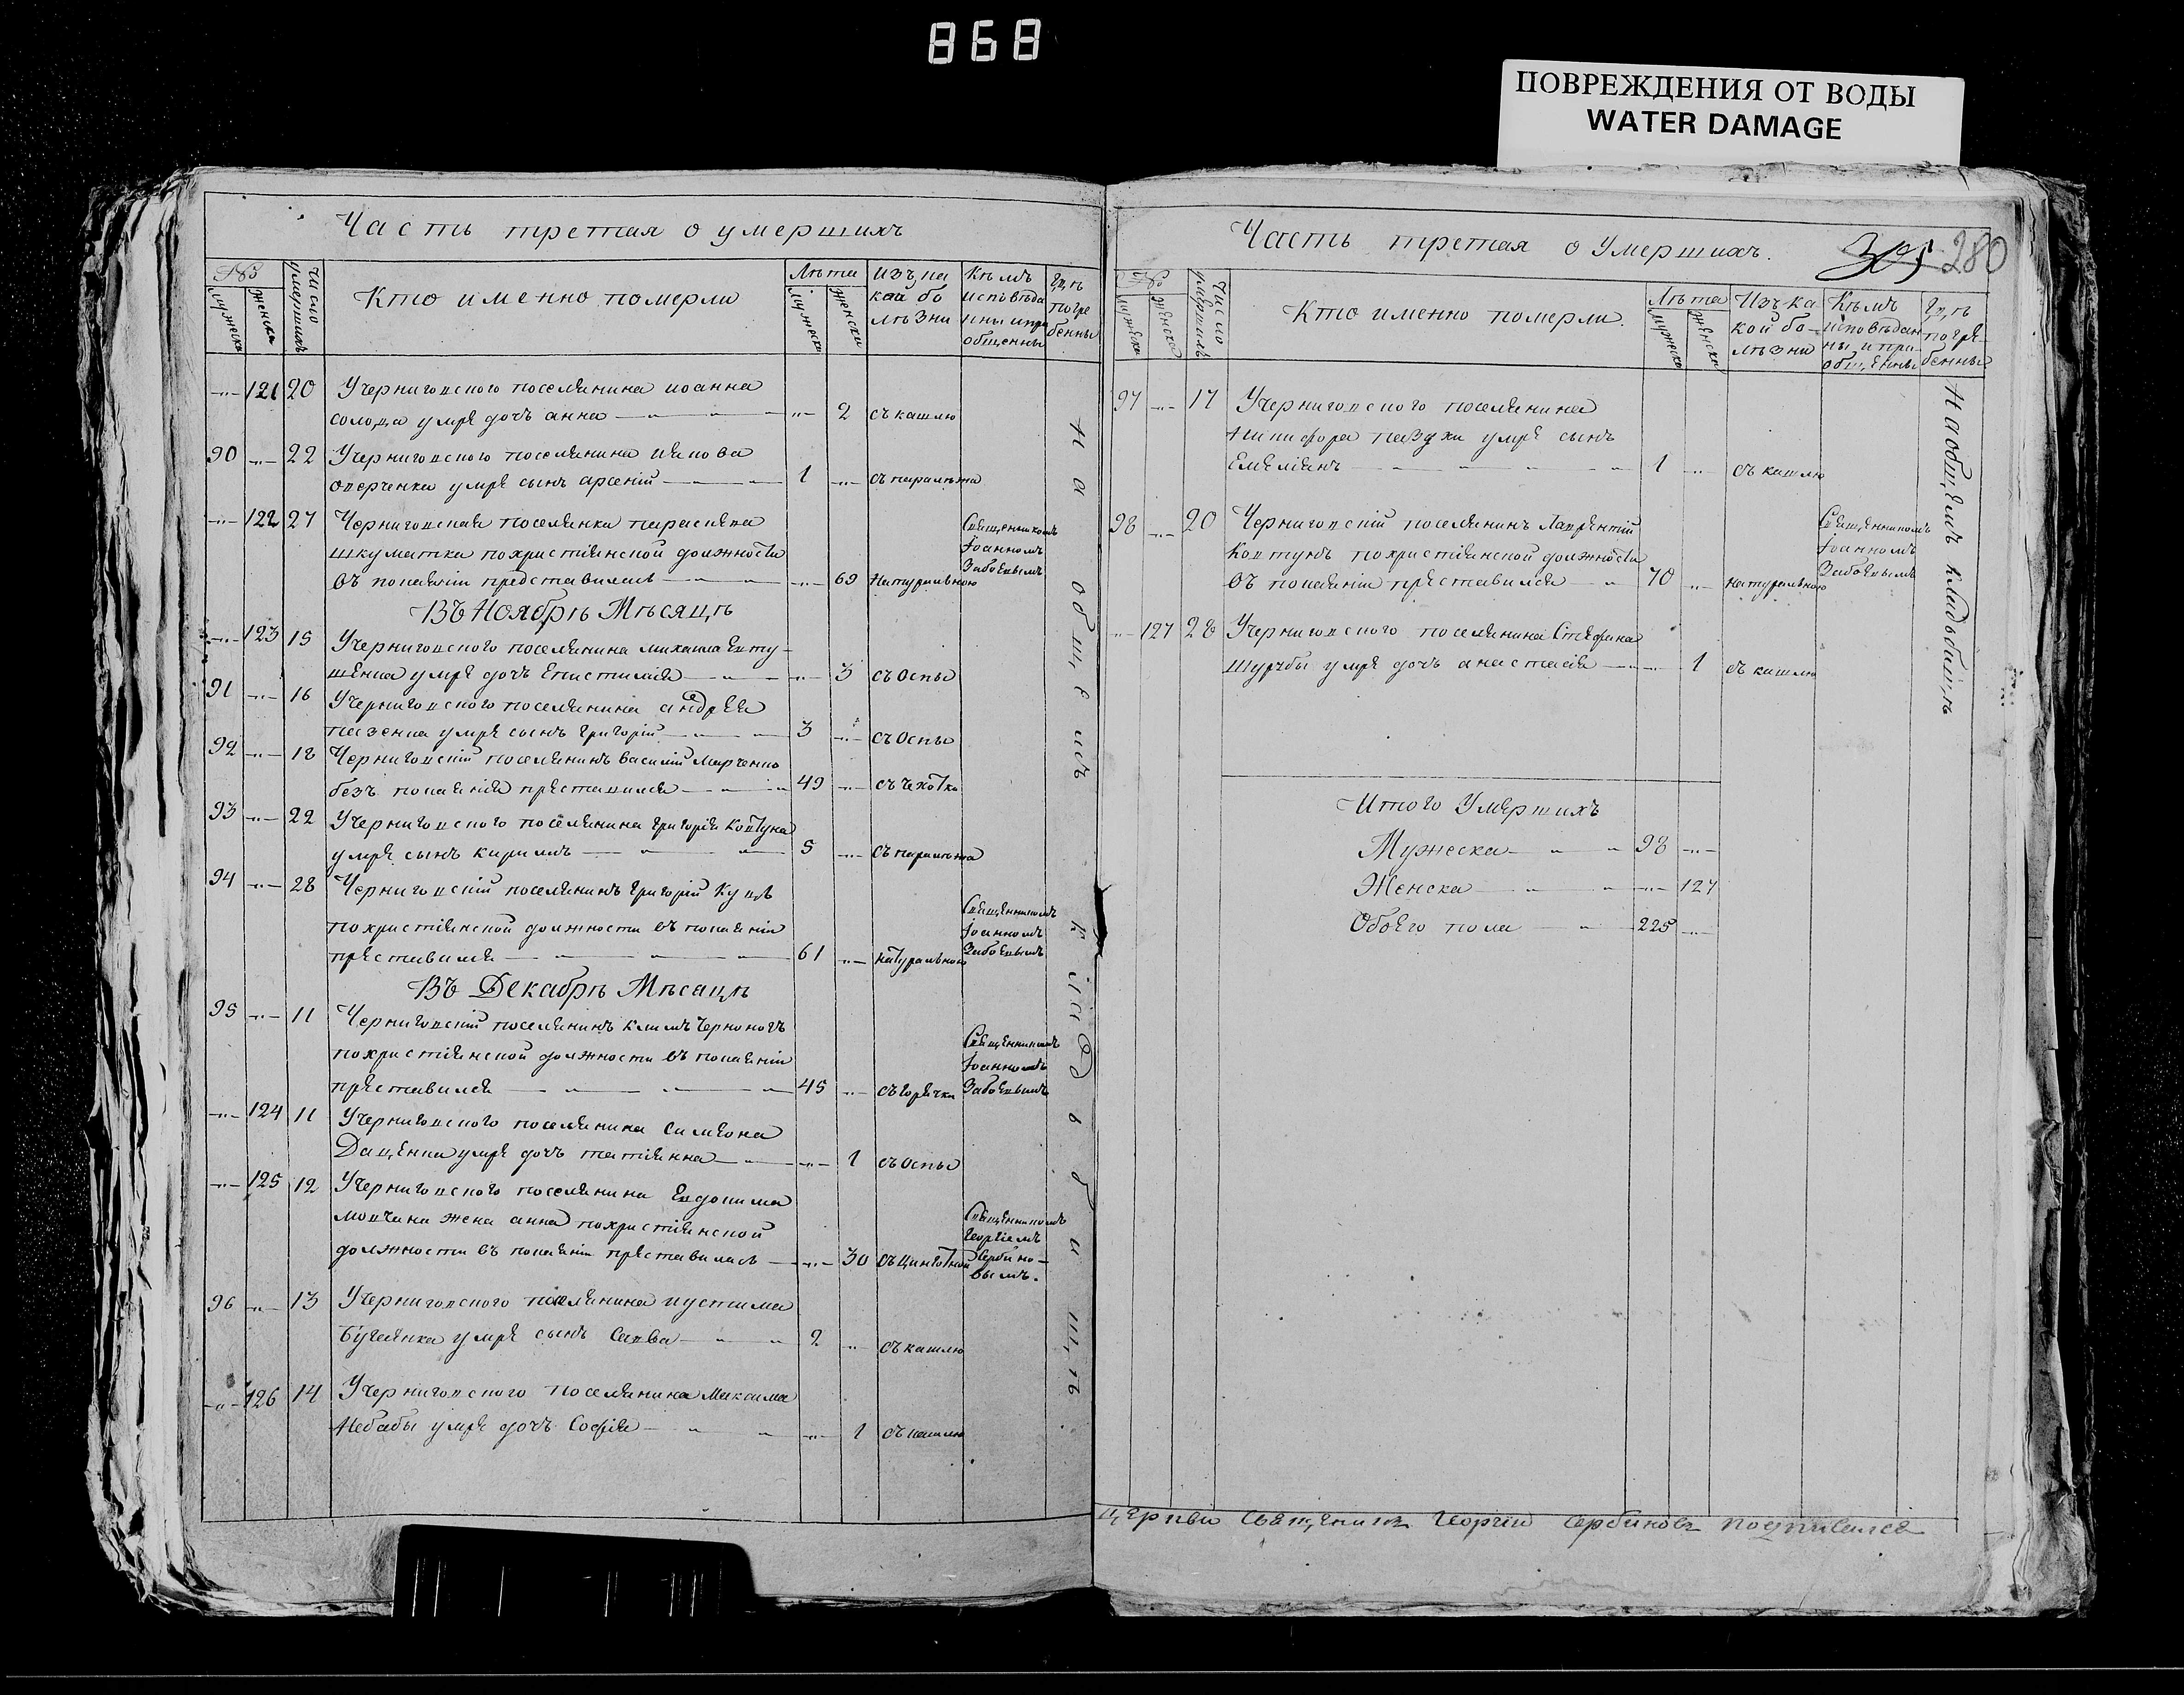 868
ПОВРЕЖДЕНИЯ ОТ ВОДЫ
WATER DAMAGE
Часть третая о умершихъ
№
мужеска
женска
число умершихъ
Кто именно померли
Лѣта
мужеска
женски
Изъ ка
кой бо
лѣзни
Кѣмъ
исповѣда
ны и прі
общенны
Гдѣ
погре
бенны
121 20 У черниговского поселянина иоанна
солода умре дочъ анна 2 съ кашлю
90 22 У черниговского поселянина иакова
оверченка умре сынъ арсеній 1 съ паралѣжа
122 27 Черниговская поселянка параскева
шкуматка похристіянской должности
въ покаяніи представиласъ 69 Натуральною
Священникомъ
Іоанномъ
Забоевымъ
Въ Ноябрѣ Мѣсяцѣ
123 15 У черниговского поселянина михаила Евту
шенка умре дочъ Епистимія 3 съ Оспы
91 16 У черниговского поселянина андрея
пазенка умре сынъ григорій 3 съ Оспы
92 18 Черниговскій поселянинъ василій Марченко
безъ покаянія преставился 49 съ чехотки
93 22 У черниговского поселянина григорія Ковтуна
умре сынъ кирилъ 5 съ паралѣжа
94 28 Черниговскій поселянинъ григорій Куцъ
похристіянской должности въ покаяніи
преставился 61 Натуральною
Священникомъ
Іоанномъ
Забоевымъ
Въ Декабрѣ Мѣсяцѣ
95 11 Черниговскій поселянинъ климъ Черноногъ
похристіянской должности въ покаяніи
преставился 45 съ горячки
Священникомъ
Іоанномъ
Забоевымъ
124 11 У черниговского поселянина Симеона
Даценка умре дочъ татіянна 1 съ Оспы
125 12 У черниговского поселянина Евдокима
мовчана жена анна похристіянской
должности въ покаяніи преставиласъ 30 съ цинготной
Священникомъ
Георгіемъ
Сербино-
вымъ.
96 13 У черниговского поселянина иустима
Бугаенка умре сынъ Савва 2 съ кашлю
126 14 У черниговского поселянина Максима
Небабы умре дочъ Софія 1 съ кашлю
На общемъ кладьбищѣ
Часть третая о Умершихъ.
305 280
№
мужеска
женска
Число умершихъ
Кто именно померли.
Лѣта
мужеска
женска
Изъ ка
кой бо-
лѣзни
Кѣмъ
исповѣдан
ны и при
общенны
Гдѣ
погре-
бенны
97 17 У черниговского поселянина
Никифора паздхи умре сынъ
Емеліянъ 1 съ кашлю
98 20 Черниговскій поселянинъ Лаврентій
Ковтунъ похристіянской должности
въ покаяніи преставился 70 Натуральною
Священникомъ
Іоанномъ
Забоевымъ
127 28 У черниговского поселянина Стефана
шурубы умре дочъ анастасія 1 съ кашлю
На общемъ кладьбищѣ
Итого Умершихъ
Мужеска 98
Женска 127
Обоего пола 225
церкви Священникъ Георгій Сербиновъ подписался